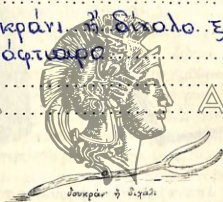 κράνι ἢ δίχαλο
άφτιαρο
δουκράν ἢ διχάλι